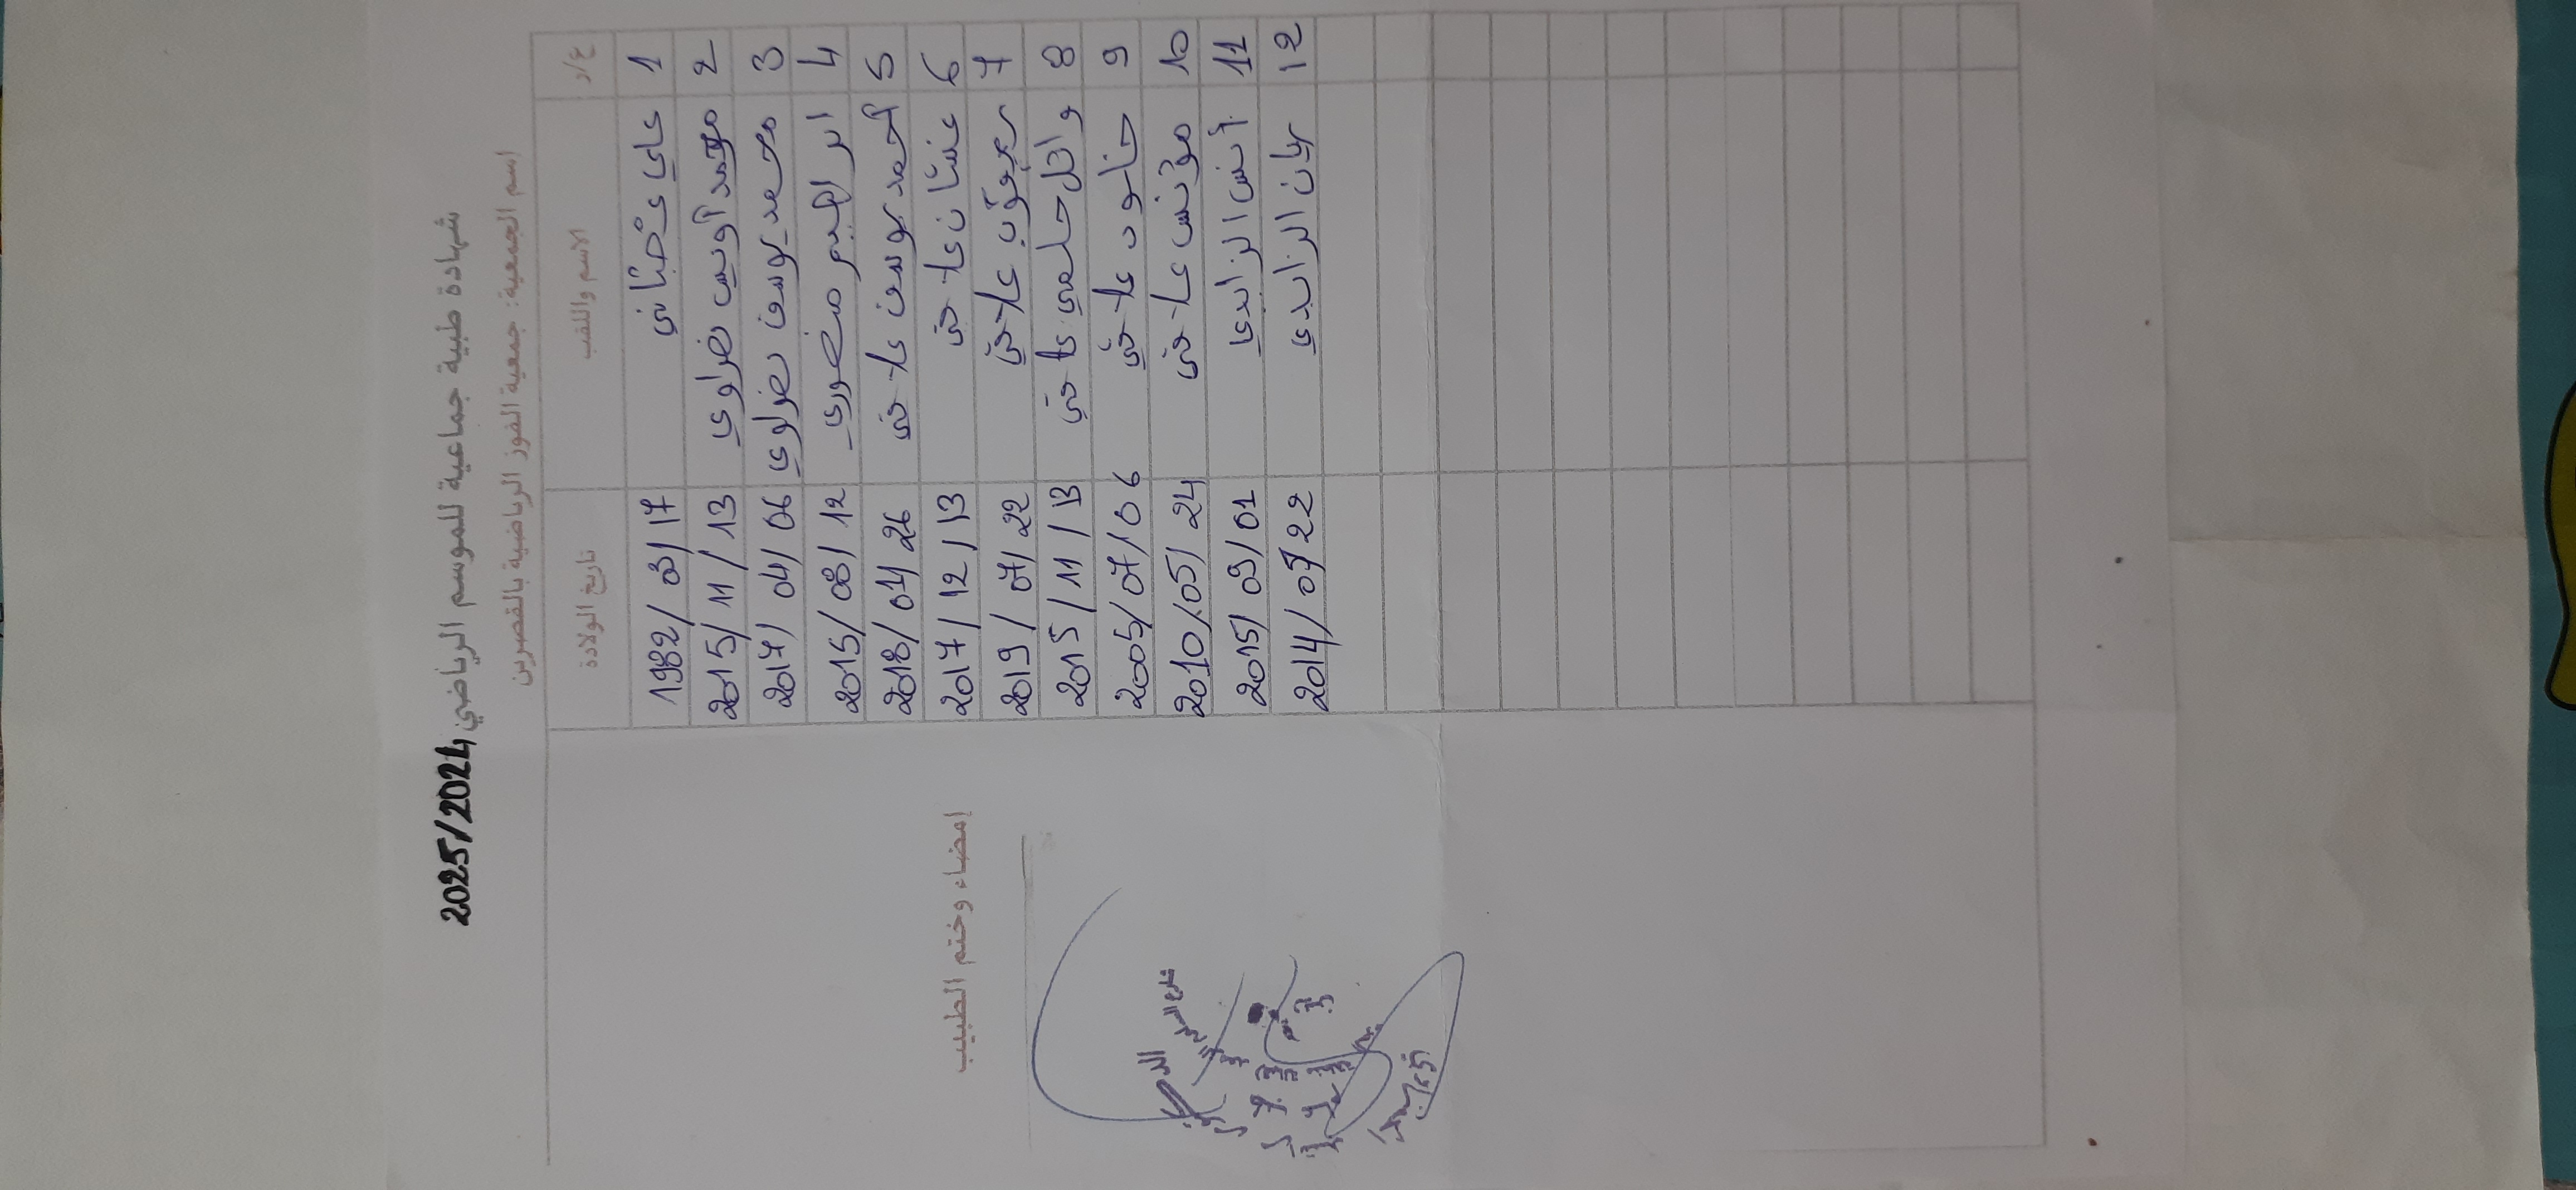 شهادة طبية جماعية للموسم الرياضي 2025/2024
اسم الجمعية: جمعية الفوز الرياضية بالقصرين
ع/د الاسم واللقب تاريخ الولادة
1 علي عصباني 1982/03/17
2 محمد أويس نصراوي 2015/11/13
3 محمد يوسف نصراوي 2017/04/06
4 ابراهيم منصوري 2015/08/12
5 أحمد يوسف علاحي 2018/04/26
6 غسان علاحي 2017/12/13
7 يعقوب علاحي 2019/07/22
8 وائل حلمي علاحي 2015/11/13
9 خلود علاحي 2005/07/06
10 مؤنس علاحي 2010/05/24
11 أنس الزايدي 2015/09/01
12 ريان الزايدي 2014/07/22
إمضاء وختم الطبيب